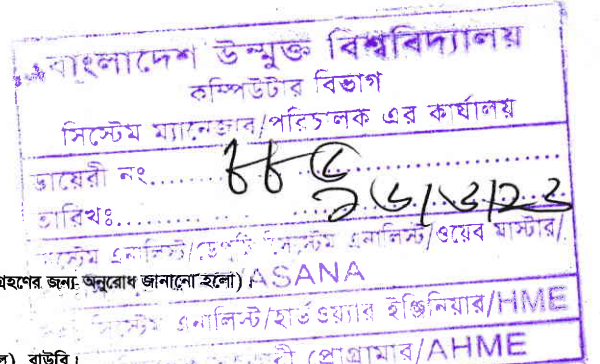 বাংলাদেশ উন্মুক্ত বিশ্ববিদ্যালয়
কম্পিউটার বিভাগ
সিস্টেম ম্যানেজার/পরিচালক এর কার্যালয়
ডায়েরী নং
তারিখঃ
সিস্টেম এনালিস্ট/ডেপুটি সিস্টেম এনালিস্ট/ওয়েব মাস্টার/
গ্রহণের জন্য অনুরোধ জানানো হলো)
ASANA
এনালিস্ট/হার্ডওয়্যার ইঞ্জিনিয়ার/HME
প্রোগ্রামার/AHME
বাউবি।